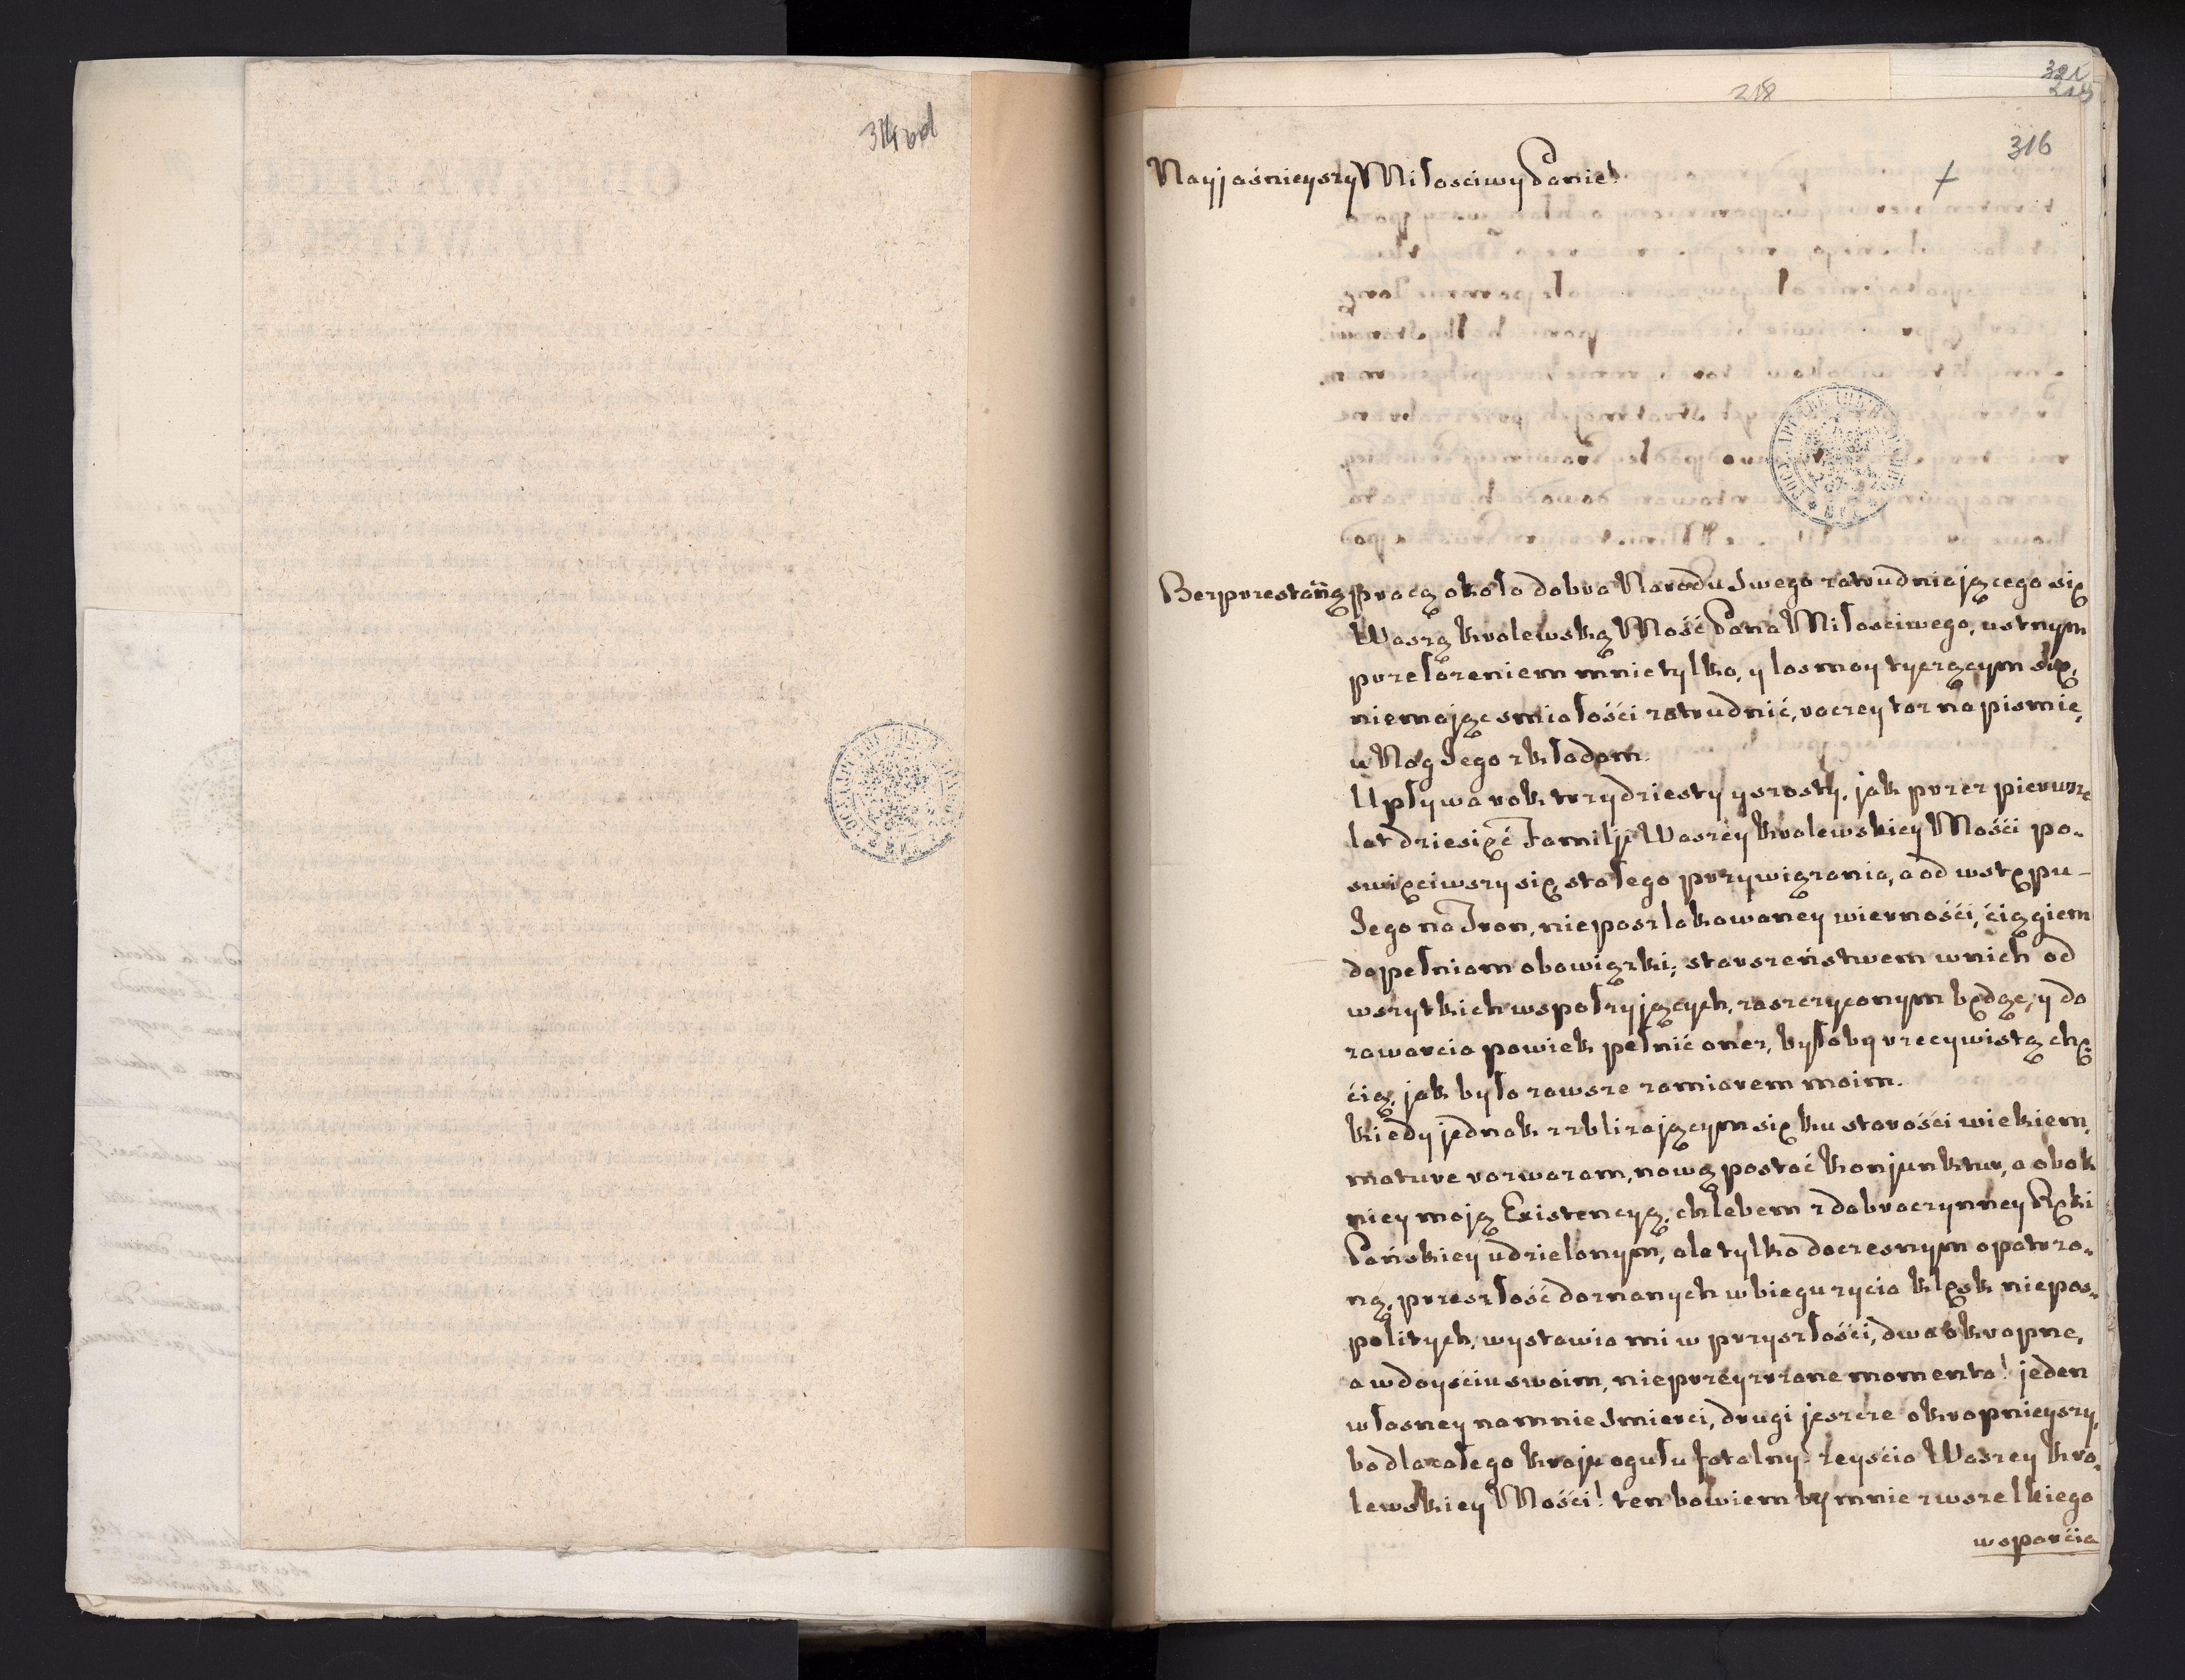 218
321
316
Nayjaśnieyszy Miłosciwy Panie!
Bezprzestanną pracą około dobra Narodu Swego zatrudniaiącego się
Waszą Krolewską Mość Pana Miłosciwego, ustnym
przełożeniem mnie tylko, y losmoy tyczącym się,
niemając smiałośći zatrudnić, raczey toż na pismie,
u Nog Jego zkładam.
Upływa rok trzydziesty y szosty, jak przez pierwsze
lat dziesięć Familji Waszey Krolewskiey Mośći po-
swięciwszy się stałego przywiązania, a od wstępu-
Jego na Tron, nieposzlakowaney wiernośći, ćiągiem
dopełniam obowiązki; starszeństwem wnich od
wszytkich wspołżyjących, zaszczyconym będąc, y do
zawarcia powiek pełnić onez, byłoby rzecywistą chę
ćią, jak było zawsze zamiarem moim.
Kiedy jednak zzbliżającym się ku starośći wiekiem,
mature rozważam, nową postać Konjunktur, a obok
niey moją Existencyą, chlebem z dobroczynney Ręki
Pańskiey udzielonym, ale tylko doczesnym opatrzo-
ną, przeszłość doznanych w biegu życia klęsk niepos-
politych, wystawia mi w przyszłośći, dwa okropne,
a w doyśćiu swoim, nieprzeyrzane momenta! jeden
własney na mnie Smierci, drugi jeszcze okropnieyszy,
bo dla całego Kraju ogułu fatalny: zeyśćia Waszey Kro-
lewskiey Mośći! ten bowiem by mnie z wszelkiego
wsparćia